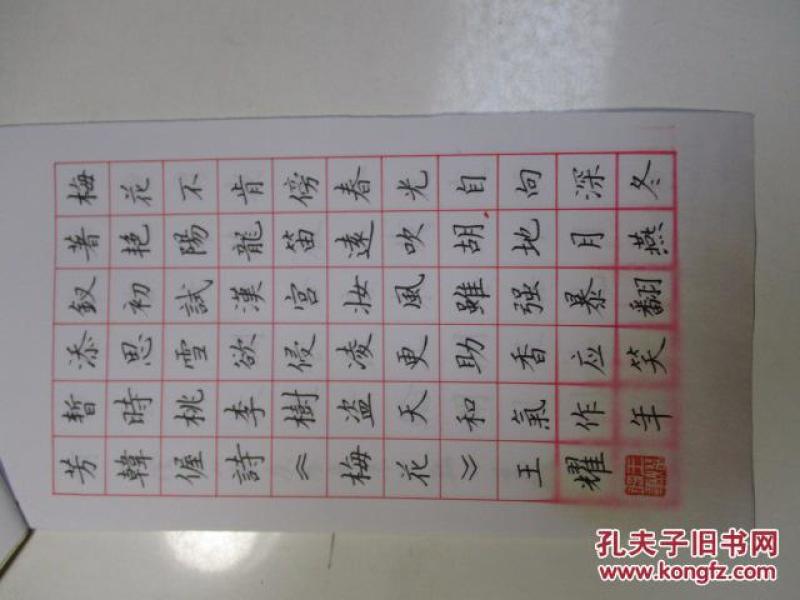 梅花不肯傍春光自向深冬
著艳陽龍笛遠吹胡地月燕
釵初試漢宮妆風雖强暴翻
添思雪欲侵凌更助香应笑
暫時桃李樹盗天和氣作年
芳韓偓詩《梅花》王耀
孔夫子旧书网
www.kongfz.com